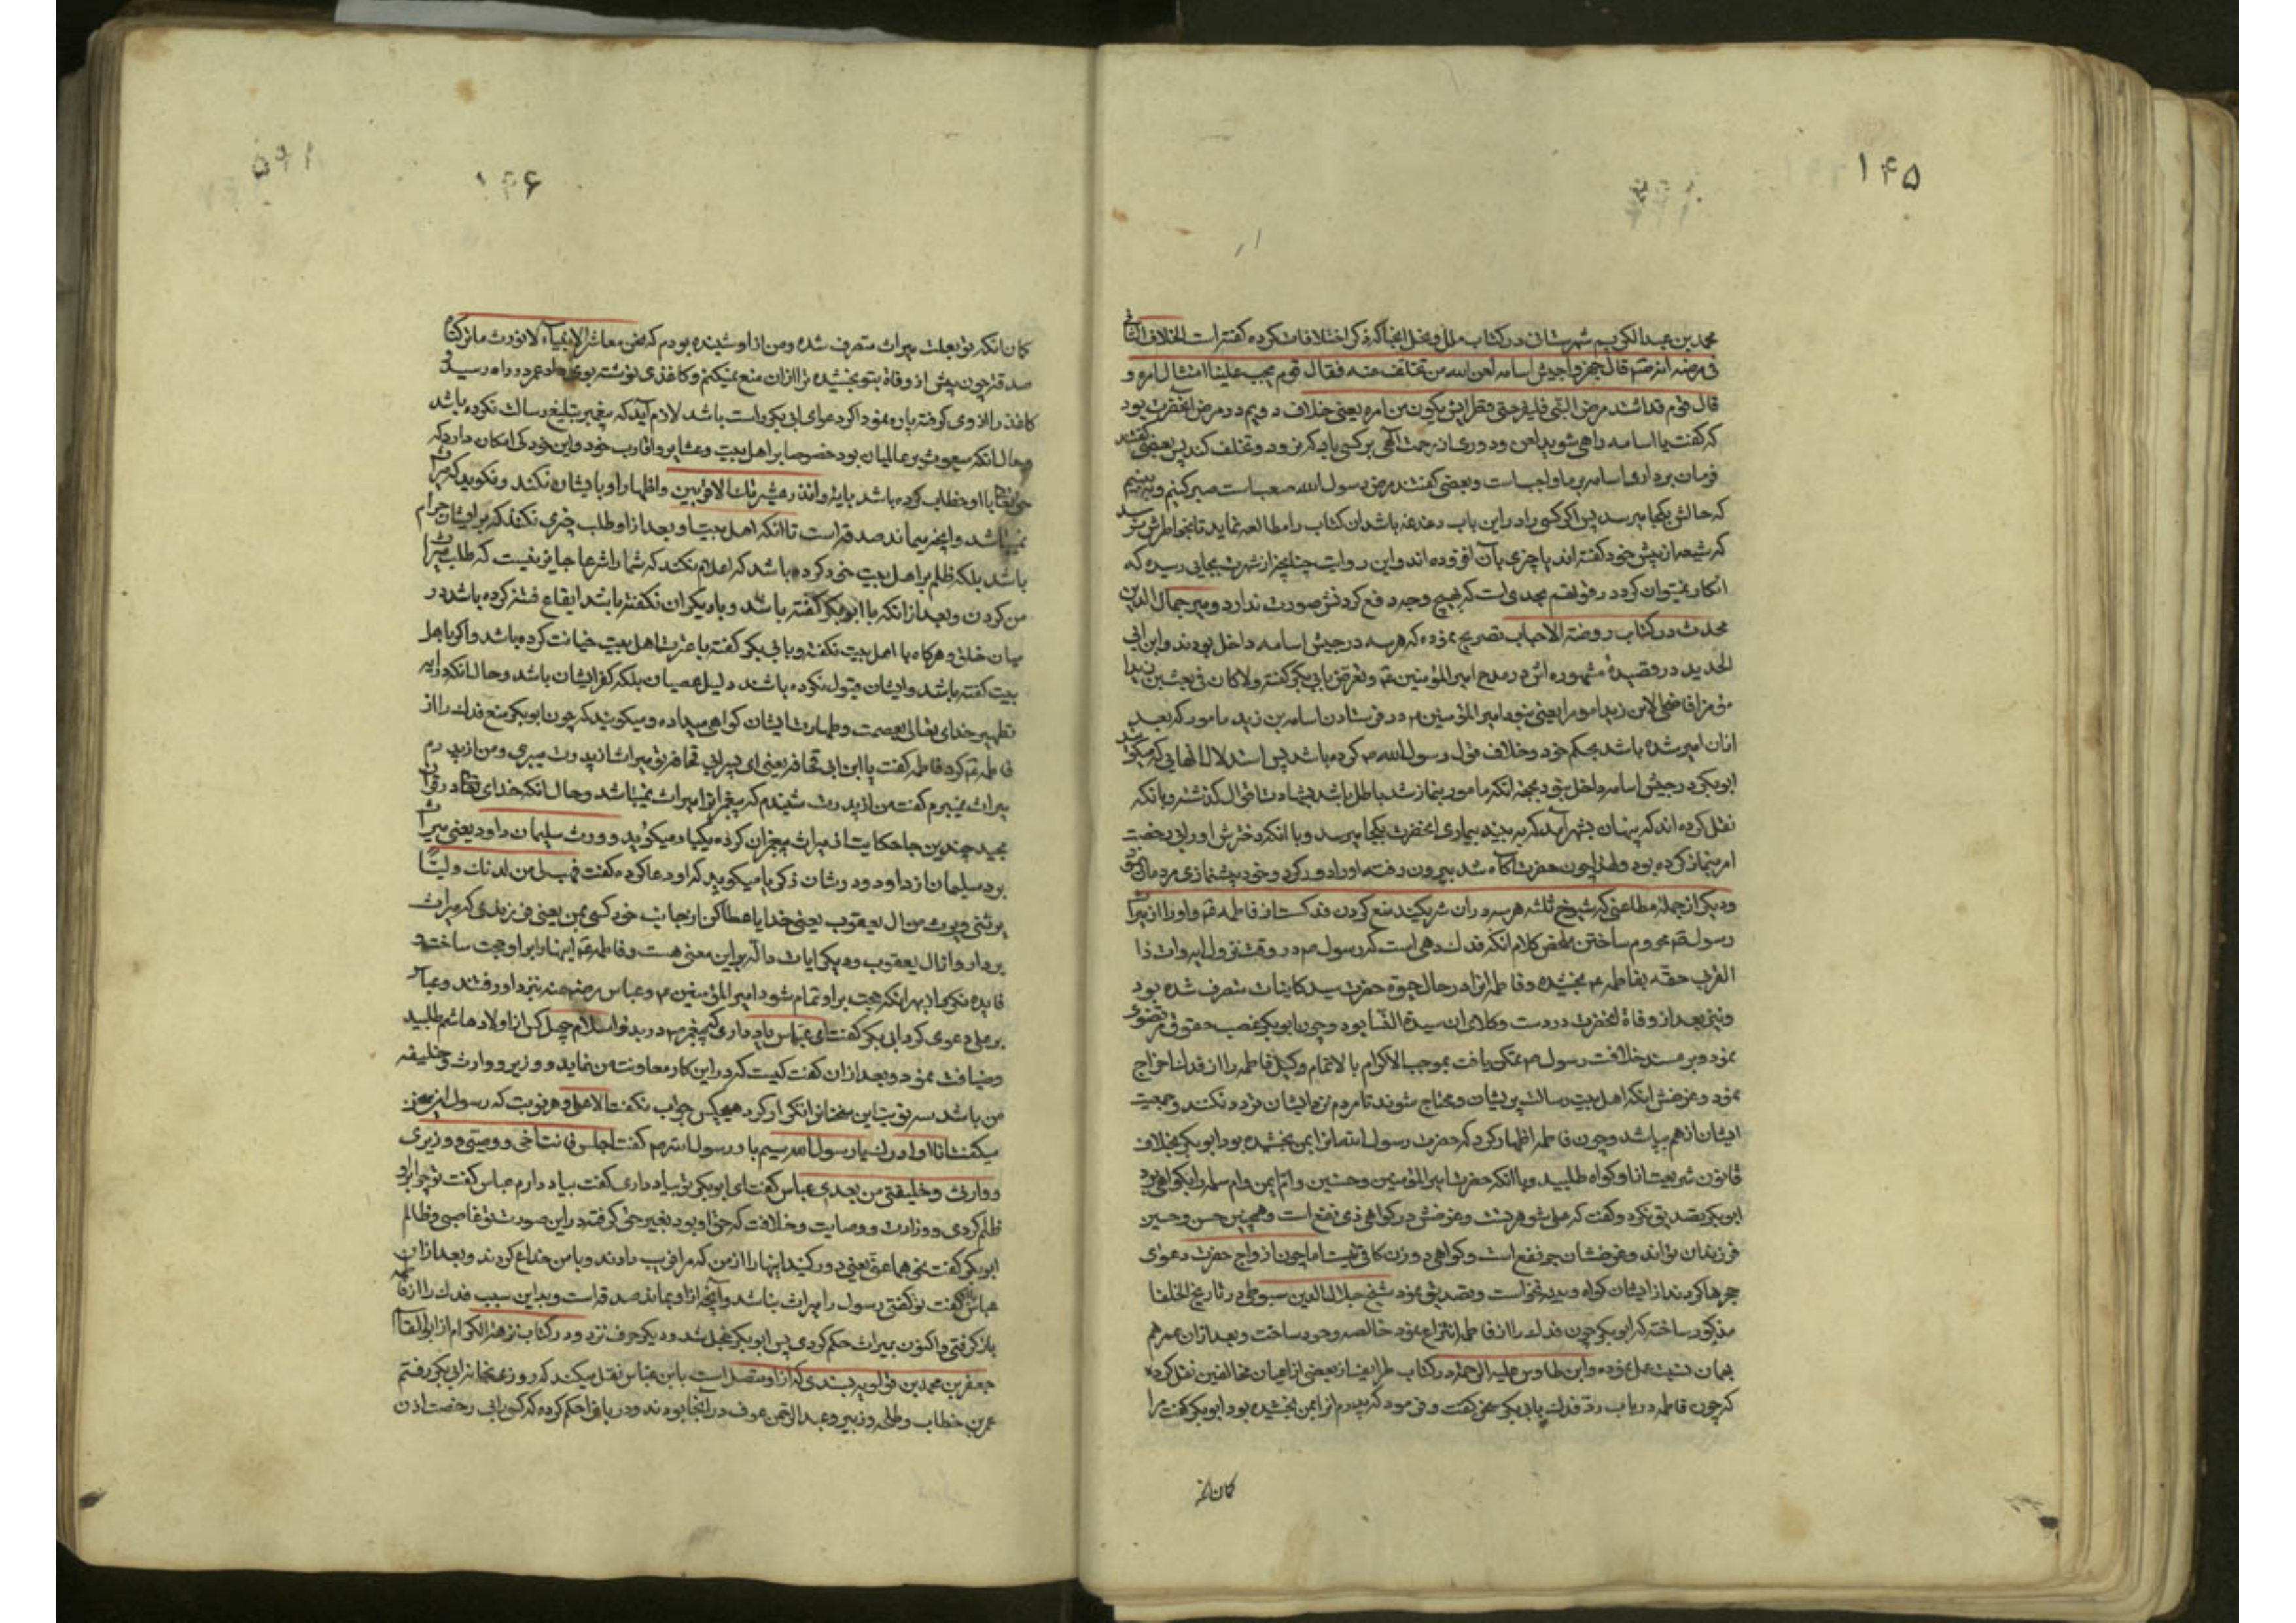 ۱۴۵
محمد بن عبدالکریم شهرستانی در کتاب ملل و نحل انجا که ذکر اختلافات کرده گفته است الخلاف الثانی
فی مرضه انه قال جهزوا جیش اسامه لعن الله من تخلف عنه فقال قوم یجب علینا امتثال امره و
قال قوم قد اشتد مرض النبی یکون من امره یعنی خلاف دویم در مرض آنحضرت بود
که گفت با اسامه راهی شوید لعن و دوری از رحمت الهی بر کسی باد که نرود و تخلف کند پس بعضی گفتند
فرمان برداری اسامه بر ما واجب است و بعضی گفتند مرض رسول الله صعب است صبر کنیم و ببینیم
که حالش بکجا میرسد پس اگر کسی را در این باب دغدغه باشد ان کتاب را مطالعه نماید تا بخواطرش نرسد
که شیعه از پیش خود گفته اند یا چیزی بآن افزوده اند و این روایت چنانچه از شهرت بجایی رسیده که
انکار نمیتوان کرد در قوت هم بحدی است که هیچ وجه دفع کردنش صورت ندارد و میر جمال الدین
محدث در کتاب روضة الاحباب تصریح نموده که هر سه در جیش اسامه داخل بودند و ابن ابی
الحدید در قصیدهٔ مشهوره اش در مدح امیر المؤمنین ع و تعرض بابی بکر گفته ولا کان فی بعث بن زید
مؤمرا فاضحی لابن زید مؤمرا یعنی نبود امیر المؤمنین ع در فرستادن اسامه بن زید مامور که بعد
ازان امیر شده باشد بحکم خود و خلاف قول رسول الله ص کرده باشد پس استدلال انهایی که میگویند
ابو بکر در جیش اسامه داخل نبود بجهة انکه مامور بنماز شد باطل باشد بشهادت اقوال گذشته و بانکه
نقل کرده اند که پنهان بشهر آمد که ببیند بیماری انحضرت بکجا میرسد و با انکه دخترش او را بی رخصت
امر بنماز کرده بود و لهذا چون حضرت آگاه شد بیرون رفته او را دور کرد و خود پیشنمازی مردمان کرد
و دیگر از جملهٔ مطاعنی که شیوخ ثلثه هر سه در ان شریکند منع کردن فدک است از فاطمه ع و او را از میراث
رسول ص محروم ساختن ملخص کلام انکه فدک دهی است که رسول ص در وقت نزول ایه وات ذا
القربی حقه بفاطمه ع بخشیده و فاطمه انرا در حال حیوة حضرت سید کاینات متصرف شده بود
و نیز بعد از وفاة انحضرت در دست وکلای ان سیدة النسا بود و چون ابو بکر غصب حقوق مرتضوی
نموده بر مسند خلافت رسول ص متمکن یافت بموجب الاکرام بالاتمام وکیل فاطمه را از فدک اخراج
نمود و غرضش اینکه اهل بیت رسالت پریشان و محتاج شوند تا مردم نزد ایشان تردد نکنند و جمعیت
ایشان از هم بپاشد و چون فاطمه اظهار کرد که حضرت رسول الله انرا بمن بخشیده بود ابو بکر بخلاف
قانون شریعت از او گواه طلبید و با انکه حضرت امیر المؤمنین و حسنین و ام ایمن و ام سلمه را بگواهی برد
ابو بکر تصدیق نکرد و گفت که علی شوهر تست و غرضش در گواهی ذی نفع است و همچنین حسن و حسین
فرزندان تواند و غرضشان جر نفع است و گواهی دو زن کافی نیست اما چون ازواج حضرت دعوی
حجرها کردند از ایشان گواه و بینه نخواست و تصدیق نمود شیخ جلال الدین سیوطی در تاریخ الخلفا
مذکور ساخته که ابو بکر چون فدک را از فاطمه انتزاع نمود خالصه و خود ساخت و بعد ازان عمر هم
بهمان سنت عمل نموده و ابن طاوس علیه الرحمة در کتاب طرایف از بعضی از اعیان مخالفین نقل کرده
که چون فاطمه در باب رد فدک بابی بکر سخن گفت و فرمود که پدرم انرا بمن بخشیده بود ابو بکر گفت مرا
کمان انکه
۱۴۶
کمان انکه تو بعلت میراث متصرف شده و من از او شنیده بودم که نحن معاشر الانبیاء لا نورث ما ترکناه
صدقة چون پیش از وفاة بتو بخشیده ترا ازان منع نمیکنم و کاغذی نوشته بوی داد عمر در راه رسید و
کاغذ را از وی گرفته پاره نمود اگر دعوای ابی بکر راست باشد لازم آید که پیغمبر تبلیغ رسالت نکرده باشد
و حال انکه مبعوث بر عالمیان بود خصوصا بر اهل بیت و عشایر و اقارب خود و این خود کی امکان دارد که
حق تعالی با او خطاب کرده باشد بایهٔ و انذر عشیرتک الاقربین و اظهار او با یشان نکند و نگوید که میراث
نمیباشد و آنچه میماند صدقه است تا انکه اهل بیت او بعد از او طلب چیزی نکنند که بر ایشان حرام
باشد بلکه ظلم بر اهل بیت خود کرده باشد که اعلام نکند که شما را شرعا جایز نیست که طلب میراث
من کردن و بعد از انکه با ابو بکر گفته باشد و با دیگران نگفته باشد ایقاع فتنه کرده باشد در
میان خلق و هرگاه با اهل بیت نگفته و بابی بکر گفته با عترت اهل بیت خیانت کرده باشد و اگر با اهل
بیت گفته باشد و ایشان قبول نکرده باشند دلیل عصیان بلکه کفر ایشان باشد و حال انکه در ایه
تطهیر خدای تعالی بعصمت و طهارت ایشان گواهی میداده و میگویند که چون ابو بکر منع فدک را از
فاطمه ع کرد فاطمه گفت یا ابن ابی قحافه یعنی ای پسر ابی قحافه تو میراث از پدرت میبری و من از پدرم
میراث نمیبرم گفت من از پدرت شنیدم که پیغمبرانرا میراث نمیباشد و حال انکه خدای تعالی در قرآن
مجید چندین جا حکایت از میراث پیغمبران کرده یکجا میگوید و ورث سلیمان داود یعنی میراث
برد سلیمان از داود و در شان ذکریا میگوید که او دعا کرده گفت فهب لی من لدنک ولیا
یرثنی و یرث من ال یعقوب یعنی خدایا عطا کن از جانب خود کسی بمن یعنی فرزندی که میراث
بردار و از ال یعقوب و دیگر ایات داله براین معنی هست و فاطمه ع اینها را بر او حجت ساخت و
فایده نکرد بهر انکه حجت بر او تمام شود امیر المؤمنین ع و عباس رضی عنه نزد او رفتند و عباس
بر علی دعوی کرد ابی بکر گفت ای عباس یاد داری که پیغمبر ص در بدو اسلام چهل کس از اولاد هاشم طلبید
و ضیافت نمود و بعد ازان گفت کیست که در این کار معاونت من نماید و وزیر و وارث و خلیفه
من باشد سه نوبت این سخنانرا تکرار کرد هیچکس جواب نگفت الا علی و هر نوبت که رسول این سخن
میگفت انا اوازرک یا رسول الله سیم بار رسول الله ص گفت اجلس فانت اخی و وصیی و وزیری
و وارثی و خلیفتی من بعدی عباس گفت ای ابو بکر تو بیاد داری گفت بیاد دارم عباس گفت تو چرا بر او
ظلم کردی و وزارت و وصایت و خلافت که حق او بود بغیر حق گرفته در این صورت تو غاصبی و ظالم
ابو بکر گفت نحی هما عنی یعنی دور کنید اینها را از من که مرا فریب دادند و با من خداع کردند و بعد ازان
عباس گفت تو گفتی رسول را میراث نباشد و آنچه از او بماند صدقه است و بداین سبب فدک را از فاطمه
باز گرفتی و اکنون بمیراث حکم کردی پس ابو بکر خجل شد و دیگر حرف نزد و در کتاب نزهة الکرام از ابو القاسم
جعفر بن محمد بن قولویه بسندی که از او متصل است بابن عباس نقل میکند که روزی بخانه ابی بکر رفتم
عمر بن خطاب و طلحه و زبیر و عبد الرحمن عوف در آنجا بودند و دربانرا حکم کرده که کورا بی رخصت اذن